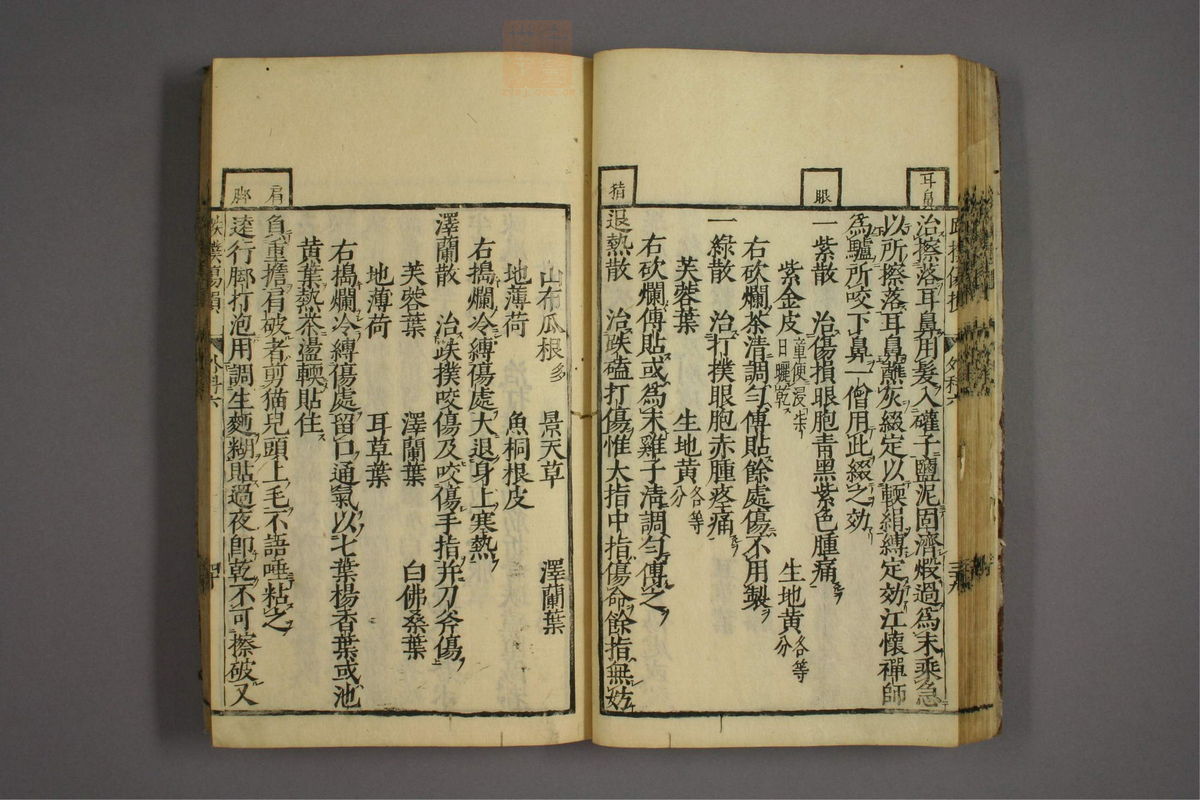 耳鼻
治擦落耳鼻用髮入礶子鹽泥固濟煅過爲末乘急
以所擦落耳鼻蘸灰綴定以輭絹縛定効江懷禪師
爲驢所咬下鼻一僧用此綴之効
眼
一紫散 治傷損眼胞青黑紫色腫痛
紫金皮 童便浸七日曬乾 生地黃 各等分
右砍爛茶清調勻傅貼餘處傷不用製
一綠散 治打撲眼胞赤腫疼痛
芙蓉葉 生地黃 各等分
右砍爛傅貼或爲末雞子清調勻傅之
指
退熱散 治跌磕打傷惟大指中指傷命餘指無妨
山布瓜根 多 景天草 澤蘭葉
地薄荷 魚桐根皮
右搗爛冷縛傷處大退身上寒熱
澤蘭散 治跌撲咬傷及咬傷手指并刀斧傷
芙蓉葉 澤蘭葉 白佛桑葉
地薄荷 耳草葉
右搗爛冷縛傷處留口通氣以七葉楊香葉或池
黃葉熱茶盪輭貼住
肩
負重擔肩破者剪猫兒頭上毛不語唾粘之
脚
逹行脚打泡用調生麵糊貼過夜卽乾不可擦破又